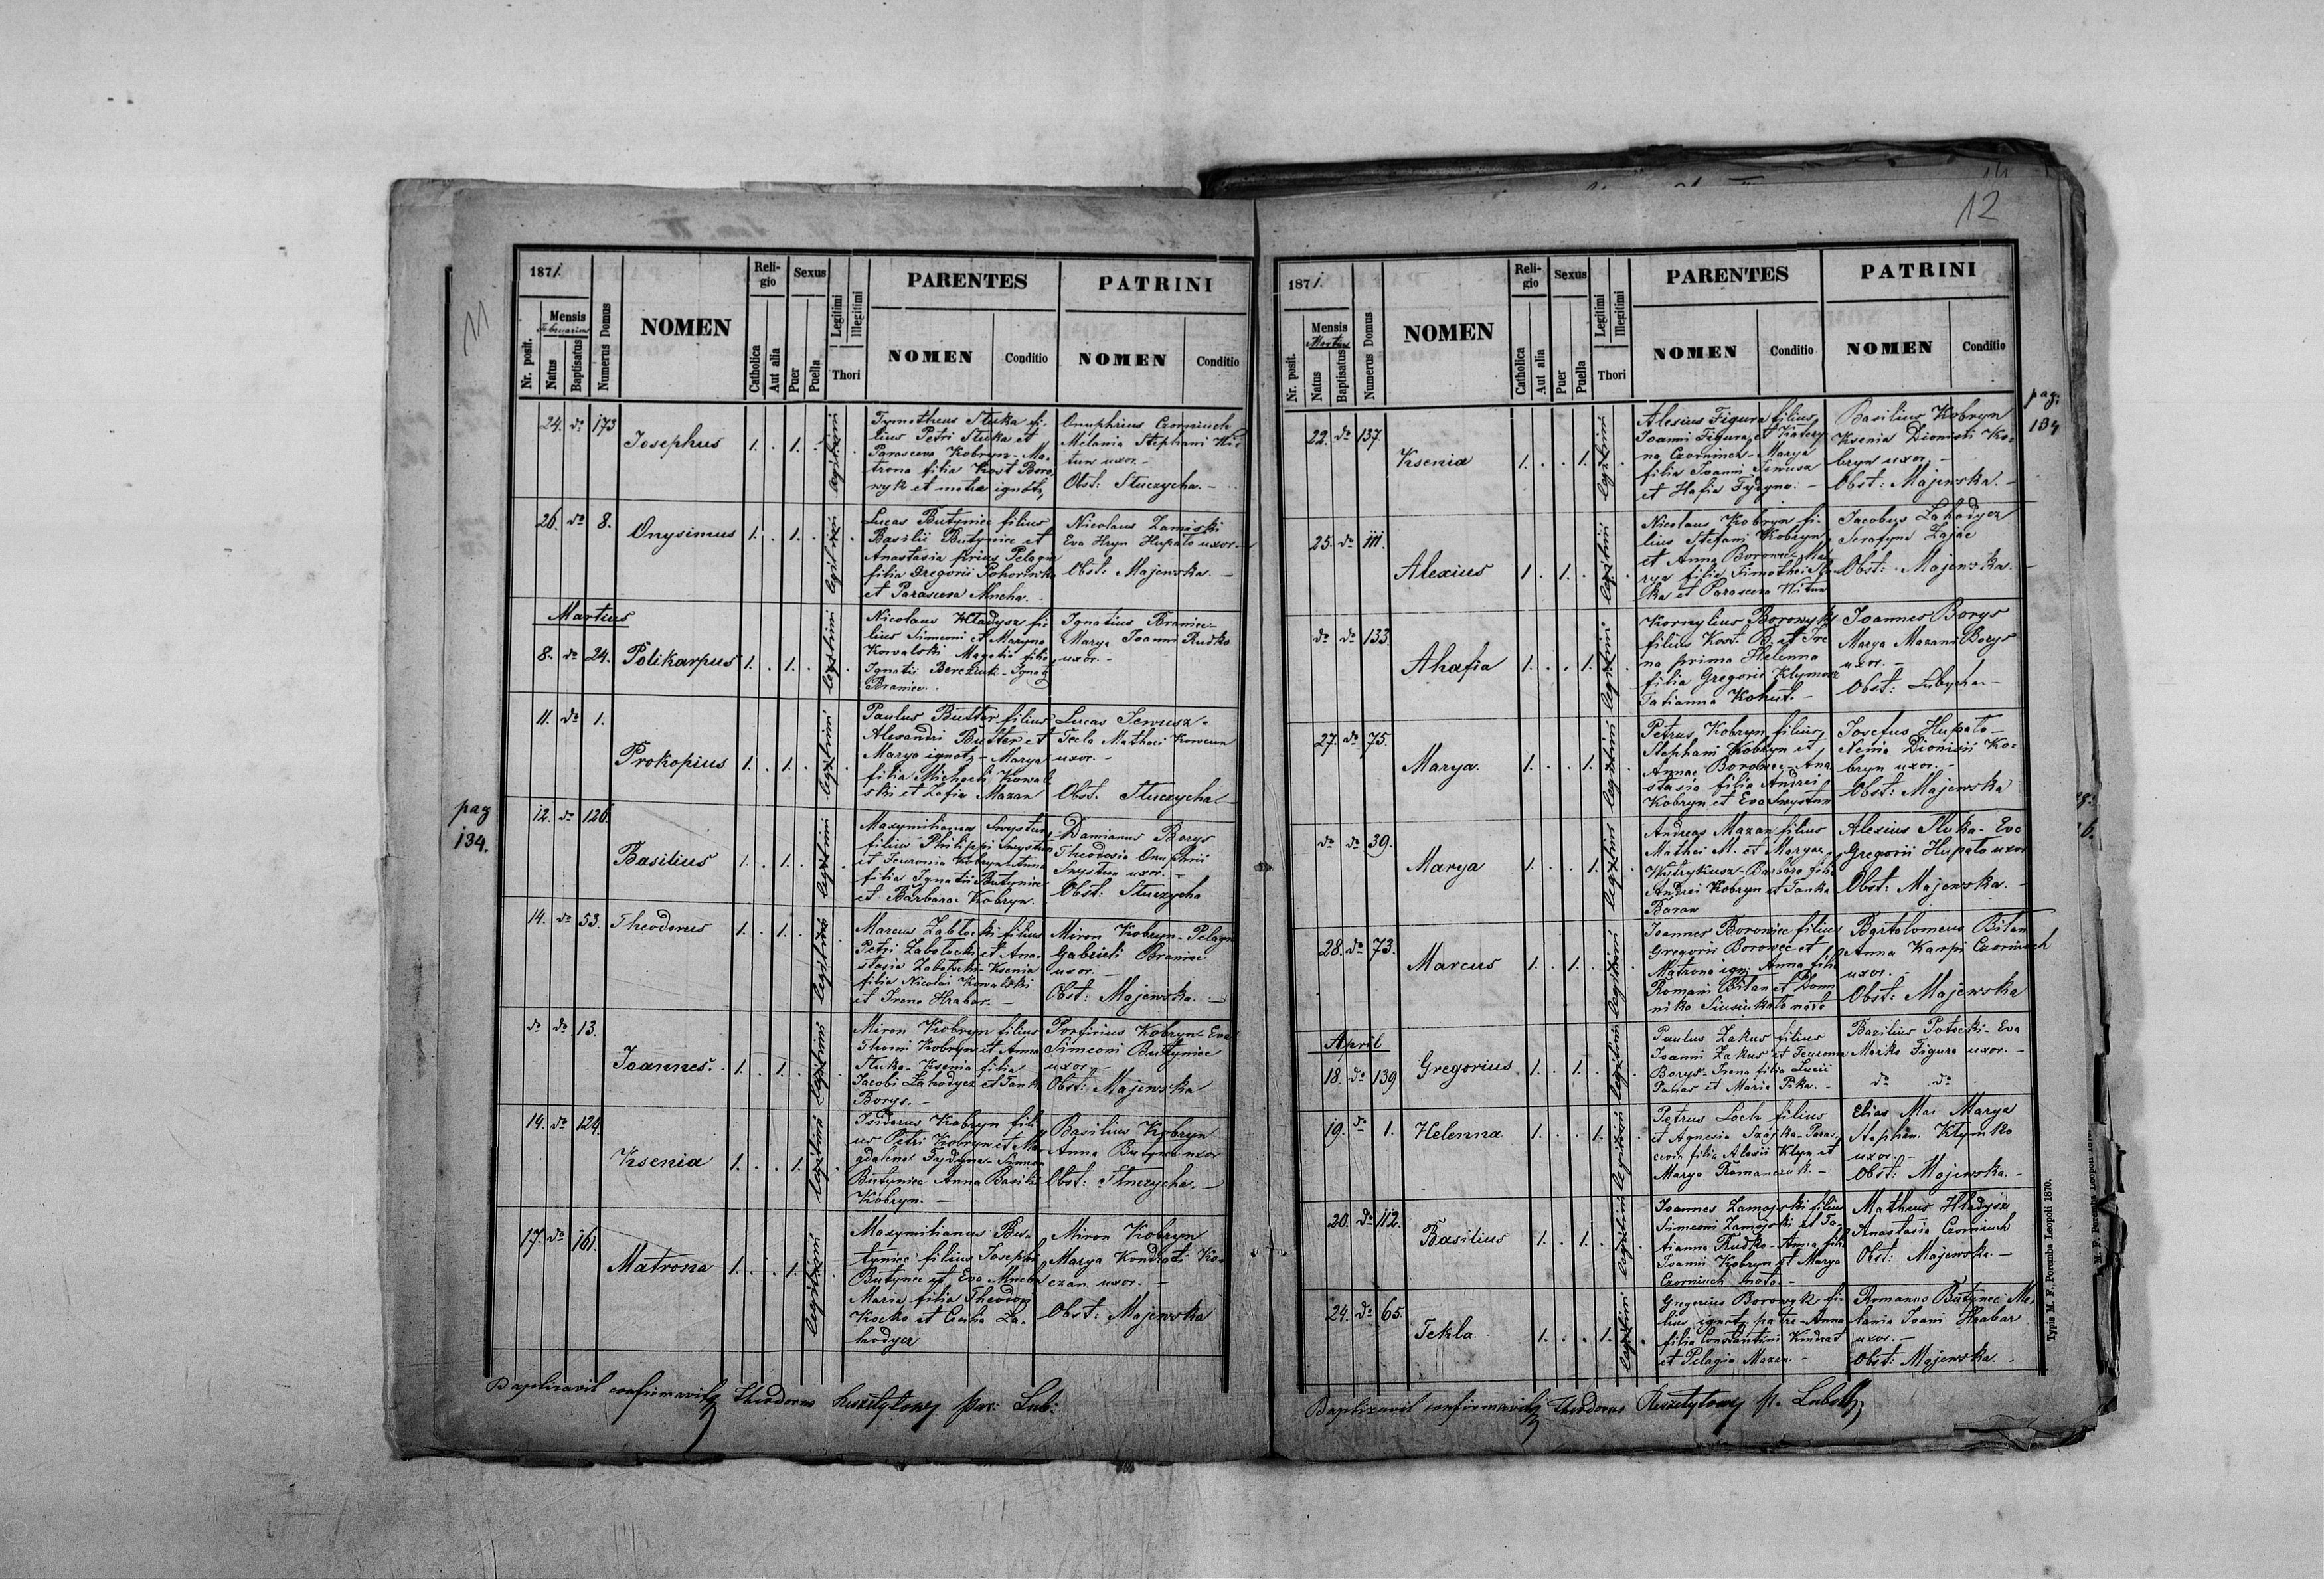 11
1871.
Mensis
Februarius
Nr. posit.
Natus
Baptisatus
Numerus Domus
NOMEN
Religio
Catholica
Aut alia
Sexus
Puer
Puella
Legitimi
Illegitimi
Thori
PARENTES
NOMEN
Conditio
PATRINI
NOMEN
Conditio
24. do 173 Josephus 1. . 1. . legitimi
Tymotheus Stuka fi-
lius Petri Stuka et
Parasceva Kobryn - Ma-
trona filia Kost Boro-
wyk et matre ignota
Onuphrius Czorniuch
Melania Stephani
uxor. -
Obst: Stuczycha. -
26. do 8. Onysimus 1. . 1. . legitimi
Lucas Butyniec filius
Basilii Butyniec et
Anastasia Pelagia
filia Gregorii
et Parasceva Mucha.
Nicolaus Zamiski
Eva Hryn Hupalo uxor. -
Obst: Majewska. -
Martius
8. do 24. Polikarpus 1. . 1. . legitimi
Nicolaus Hladysz fi-
lius Simeoni et Maryna
Kowalski filia
Ignatii
Braniec.
Ignatius Braniec
Marya Joanni Rudko
uxor. -
11. do 1. Prokopius 1. . 1. . legitimi
Paulus Butter filius
Alexandri Butter et
Marya ignota - Marya
filia Michaeli Kowal-
ski et Zofia Mazan
Lucas Iewusz -
Tecla Mathaei
uxor. -
Obst. Stuczycha -
pag
134.
12. do 126. Basilius 1. . 1. . legitimi
Maxymilianus Swystun
filius Philippi Swystun
et Kobryn - Anna
filia Ignatii Butyniec
et Barbarae Kobryn.
Damianus Borys
Theodosia Onuphrii
Swystun uxor. -
Obst: Stuczycha
14. do 53. Theodorus 1. . 1. . legitimi
Marcus Zablocki filius
Petri Zabolocki et Ana-
stasia Zabolocki - Ksenia
filia Nicolai Kowalski
et Irena Hrabar. -
Miron Kobryn - Pelagia
Gabrieli Braniec
uxor. -
Obst: Majewska. -
do do 13. Joannes. 1. . 1. . legitimi
Miron Kobryn filius
Thomi Kobryn et Anna
Stuka - Ksenia filia
Jacobi Zahodycz et Tanka
Borys. -
Porfirius Kobryn - Eva
Simeoni Butyniec
uxor. -
Obst: Majewska
14. do 124. Ksenia 1. . . 1. legitimi
Isidorus Kobryn fili-
us Petri Kobryn et Ma-
gdalena Fydyna -
Butyniec Anna Basilii
Kobryn. -
Basilius Kobryn
Anna Butyniec uxor
Obst: Stuczycha. -
17. do 161. Matrona 1. . . 1. legitimi
Maxymilianus Bu-
tyniec filius Josephi
Butyniec et Eva Mucha
Maria filia Theodori
Kocko et Za-
hodycz
Miron Kobryn
Marya Kondrati Ko-
czan uxor. -
Obst: Majewska
Baptizavit confirmavitq Theodorus Reszetylowy par: Lub:
12
1871.
Mensis
Martius
Nr. posit.
Natus
Baptisatus
Numerus Domus
NOMEN
Religio
Catholica
Aut alia
Sexus
Puer
Puella
Legitimi
Illegitimi
Thori
PARENTES
NOMEN
Conditio
PATRINI
NOMEN
Conditio
pag:
134
22. do 137. Ksenia 1. . . 1. legitimi
Alexius Figura filius
Joanni Figura et Katery-
na Czorniuch - Marya
filia Joanni Iewusz
et Hafia Fydyna. -
Basilius Kobryn
Ksenia Dionisi Ko-
bryn uxor. -
Obst: Majewska. -
25. do 111. Alexius 1. . 1. . legitimi
Nicolaus Kobryn fi-
lius Stefani Kobryn
et Anna Borowec - Ma-
rya filia Timothei Stu-
ka et Parasceva
Jacobus Zahodycz
Serafyna Zajac
Obst: Majewska. -
do do 133. Ahafia 1. . . 1. legitimi
Kornylius Borowyk
filius Kost. B. et Ire-
na prima Helenna
filia Gregorii
Tatianna Kohut. -
Joannes Borys
Marya Mazani Borys
uxor. -
Obst: Lubycha -
27. do 75. Marya. 1. . . 1. legitimi
Petrus Kobryn filius
Stephani Kobryn et
Annae Borowec - Ana-
stasia filia Andrei
Kobryn et Eva Swystun
Josefus Hupalo -
Dionisii Ko-
bryn uxor. -
Obst: Majewska
do do 39. Marya 1. . . 1. legitimi
Andreas Mazan filius
Mathei M. et Marya
Wytrykusz - Barbara filia
Andrei Kobryn et Tanka
Baran
Alexius Stuka - Eva
Gregorii Hupalo uxor
Obst: Majewska. -
28. do 73. Marcus 1. . 1. . legitimi
Joannes Borowiec filius
Gregorii Borowec et
Matrona ign: Anna filia
Romani Bilan et Dom-
nika
Bartolomeus Bilan
Anna Karpi Czorniuch
uxor. -
Obst: Majewska
April
18. do 139 Gregorius 1. . 1. . legitimi
Paulus Zakus filius
Joanni Zakus et
Borys - Irena filia Lucii
et Maria Pika. -
Bazilius Potocki - Eva
Mariko Figura uxor. -
do do
19. do 1. Helenna 1. . . 1. legitimi
Petrus Loch filius
et Agnesia Szojka - Paras-
cevia filia Alexii Klyn et
Marya Romanczuk. -
Elias Mai Marya
Stephan. Klymko
uxor. -
Obst: Majewska. -
20. do 112. Basilius 1. . 1. . legitimi
Joannes Zamojski filius
Simeoni Zamojski et Ta-
tianna Rudko - Anna filia
Joanni Kobryn et Marya
Czorniuch nata. -
Matheus Hladysz
Anastasia Czorniuch
Obst: Majewska. -
24. do 65. Tekla. 1. . . 1. legitimi
Gregorius Borowyk fi-
lius ignoti patre - Anna
filia Constantini Kindrat
et Pelagia Mazan. -
Romanus Butyniec Me-
lania Joani Hrabar
uxor. -
Obst: Majewska. -
Baptizavit confirmavitq Theodorus Reszetylowy p.
Typis M. F. Poremba Leopoli 1870.